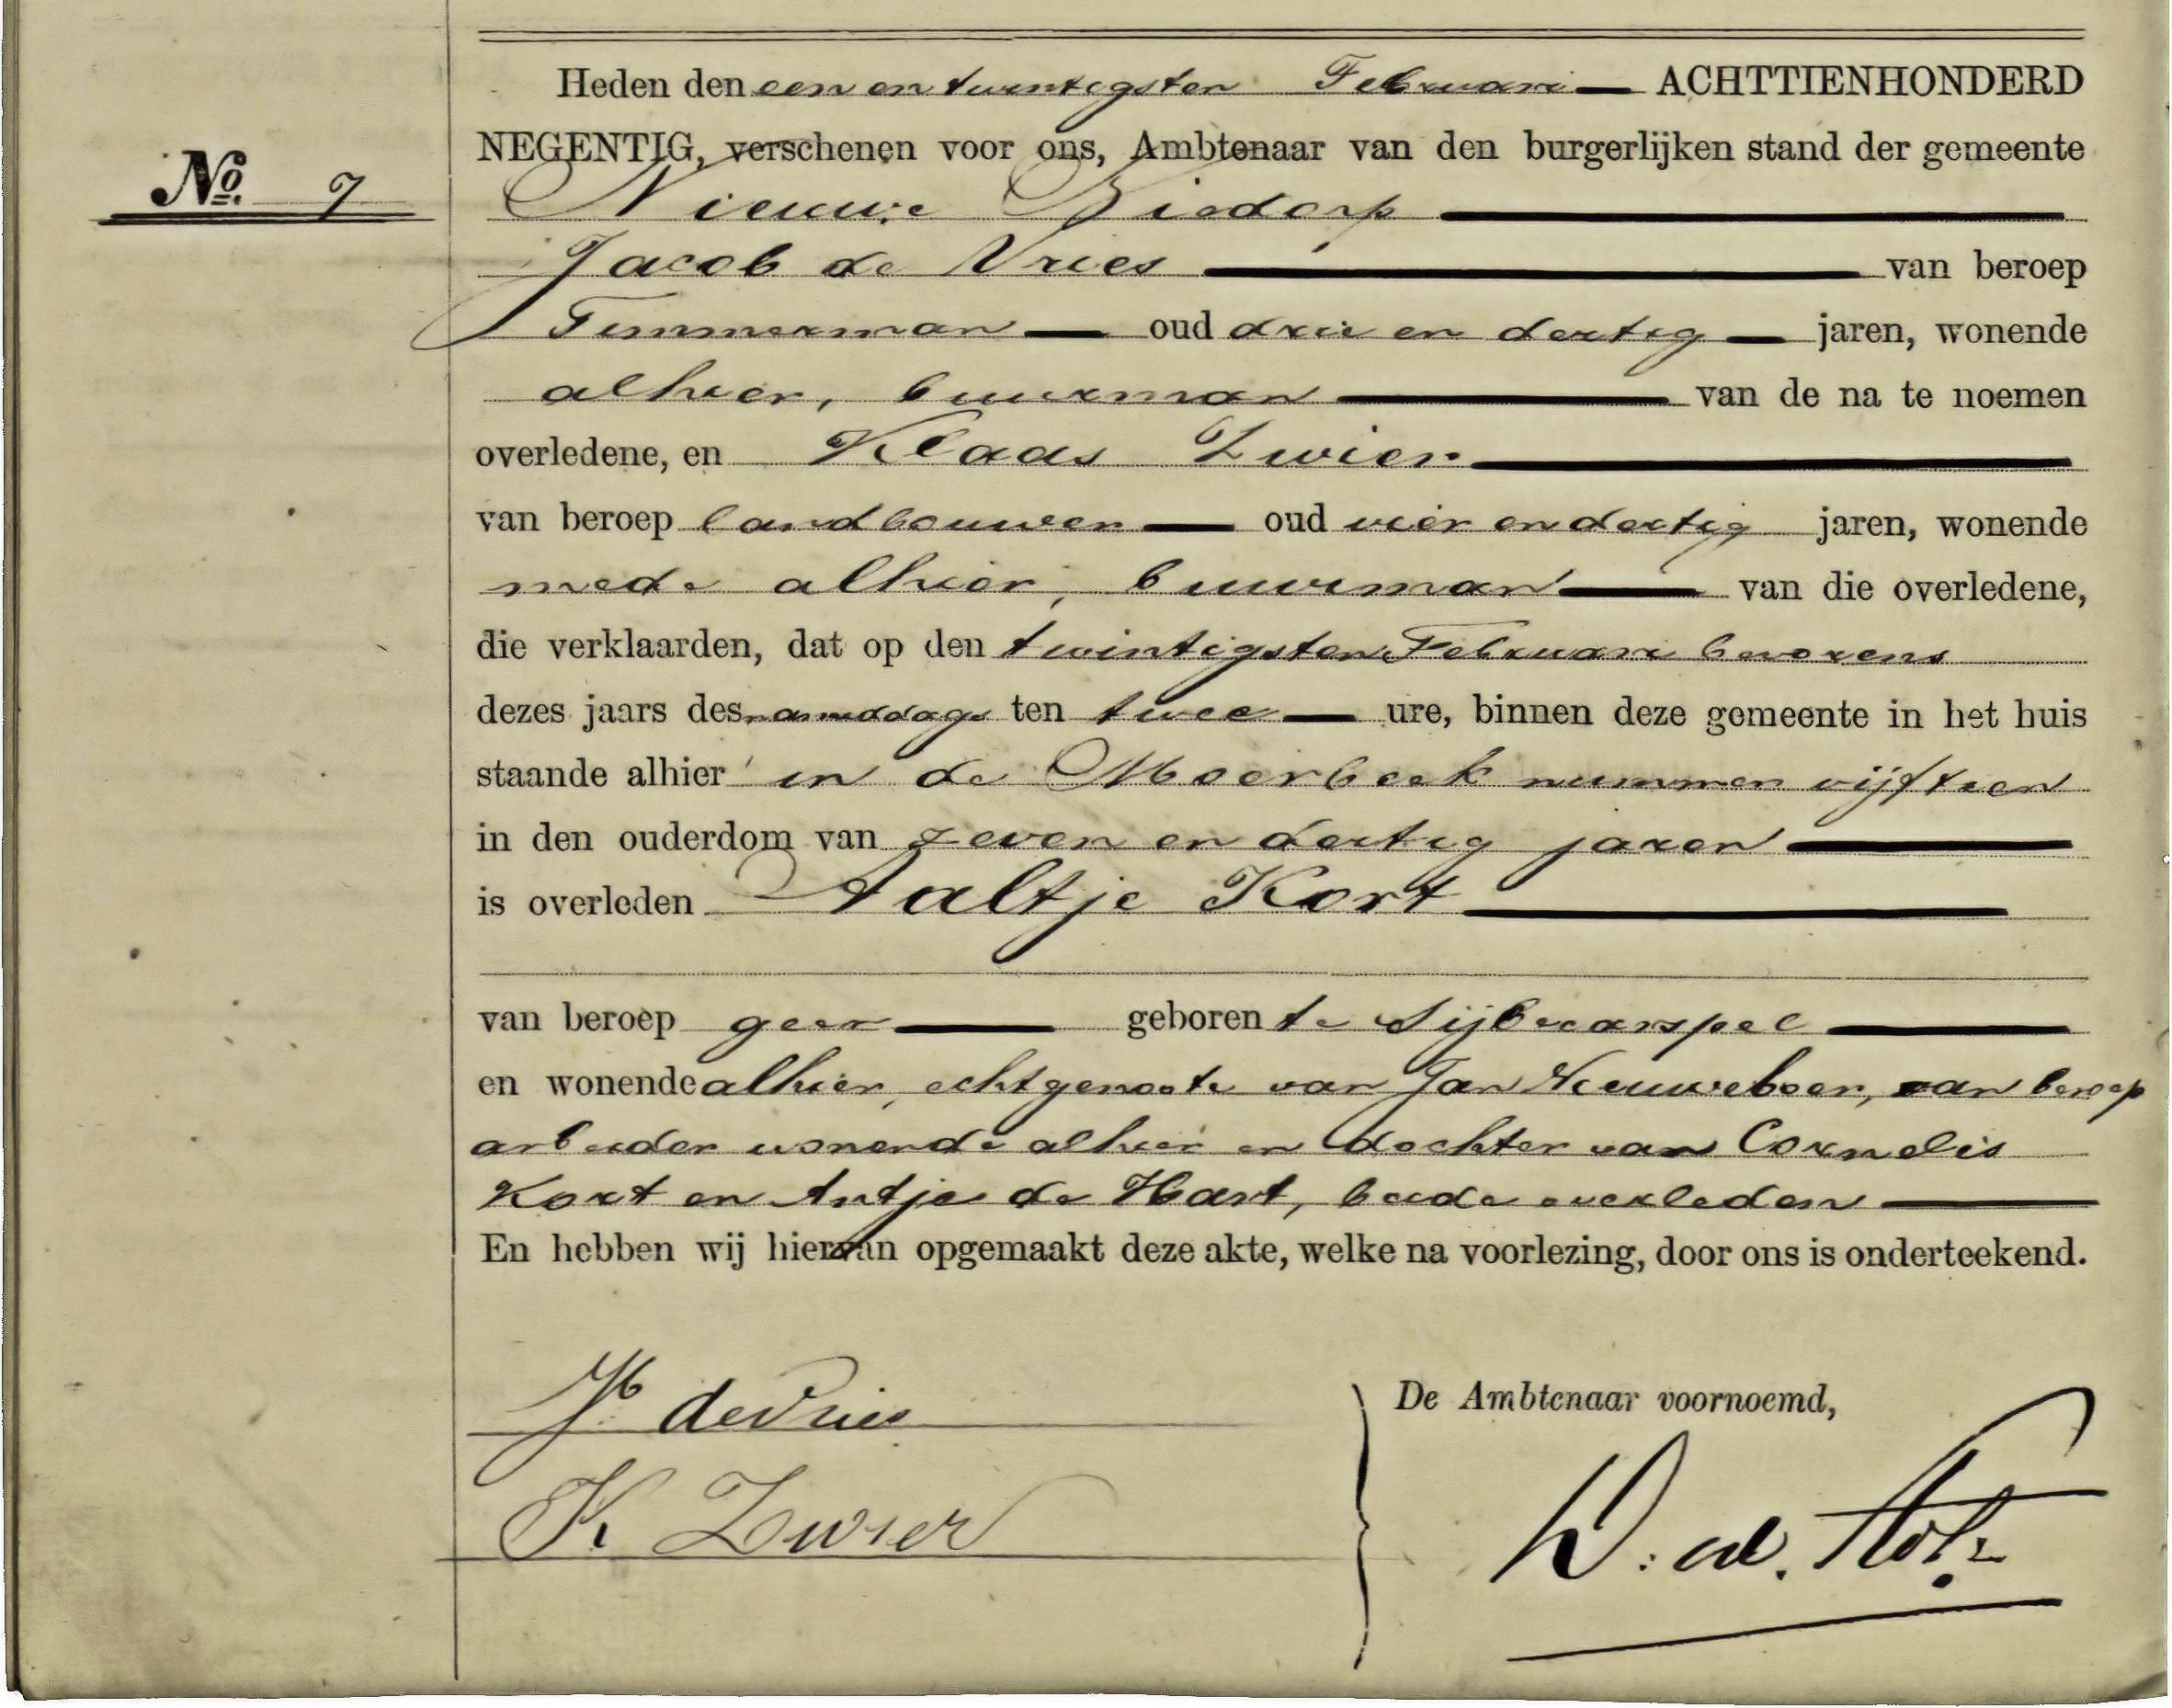 Heden den een en twintigsten Februari ACHTTIENHONDERD
NEGENTIG, verschenen voor ons, Ambtenaar van den burgerlijken stand der gemeente
No. 7
Nieuwe Niedorp
Jacob de Vries van beroep
Timmerman oud drie en dertig jaren, wonende
alhier, buurman van de na te noemen
overledene, en Klaas Zwier
van beroep landbouwer oud vier en dertig jaren, wonende
mede alhier, buurman van die overledene,
die verklaarden, dat op den twintigsten Februari bevorens
dezes jaars des namiddags ten twee ure, binnen deze gemeente in het huis
staande alhier in de Moerbeek nummer vijftien
in den ouderdom van zeven en dertig jaren
is overleden Aaltje Kort
van beroep geen geboren te Sijbecarspel
en wonende alhier, echtgenoote van Jan Nieuweboer, van beroep
arbeider wonende alhier en dochter van Cornelis
Kort en Antje de Hart, beide overleden
En hebben wij hiervan opgemaakt deze akte, welke na voorlezing, door ons is onderteekend.
Jb de Vries
De Ambtenaar voornoemd,
K Zwier